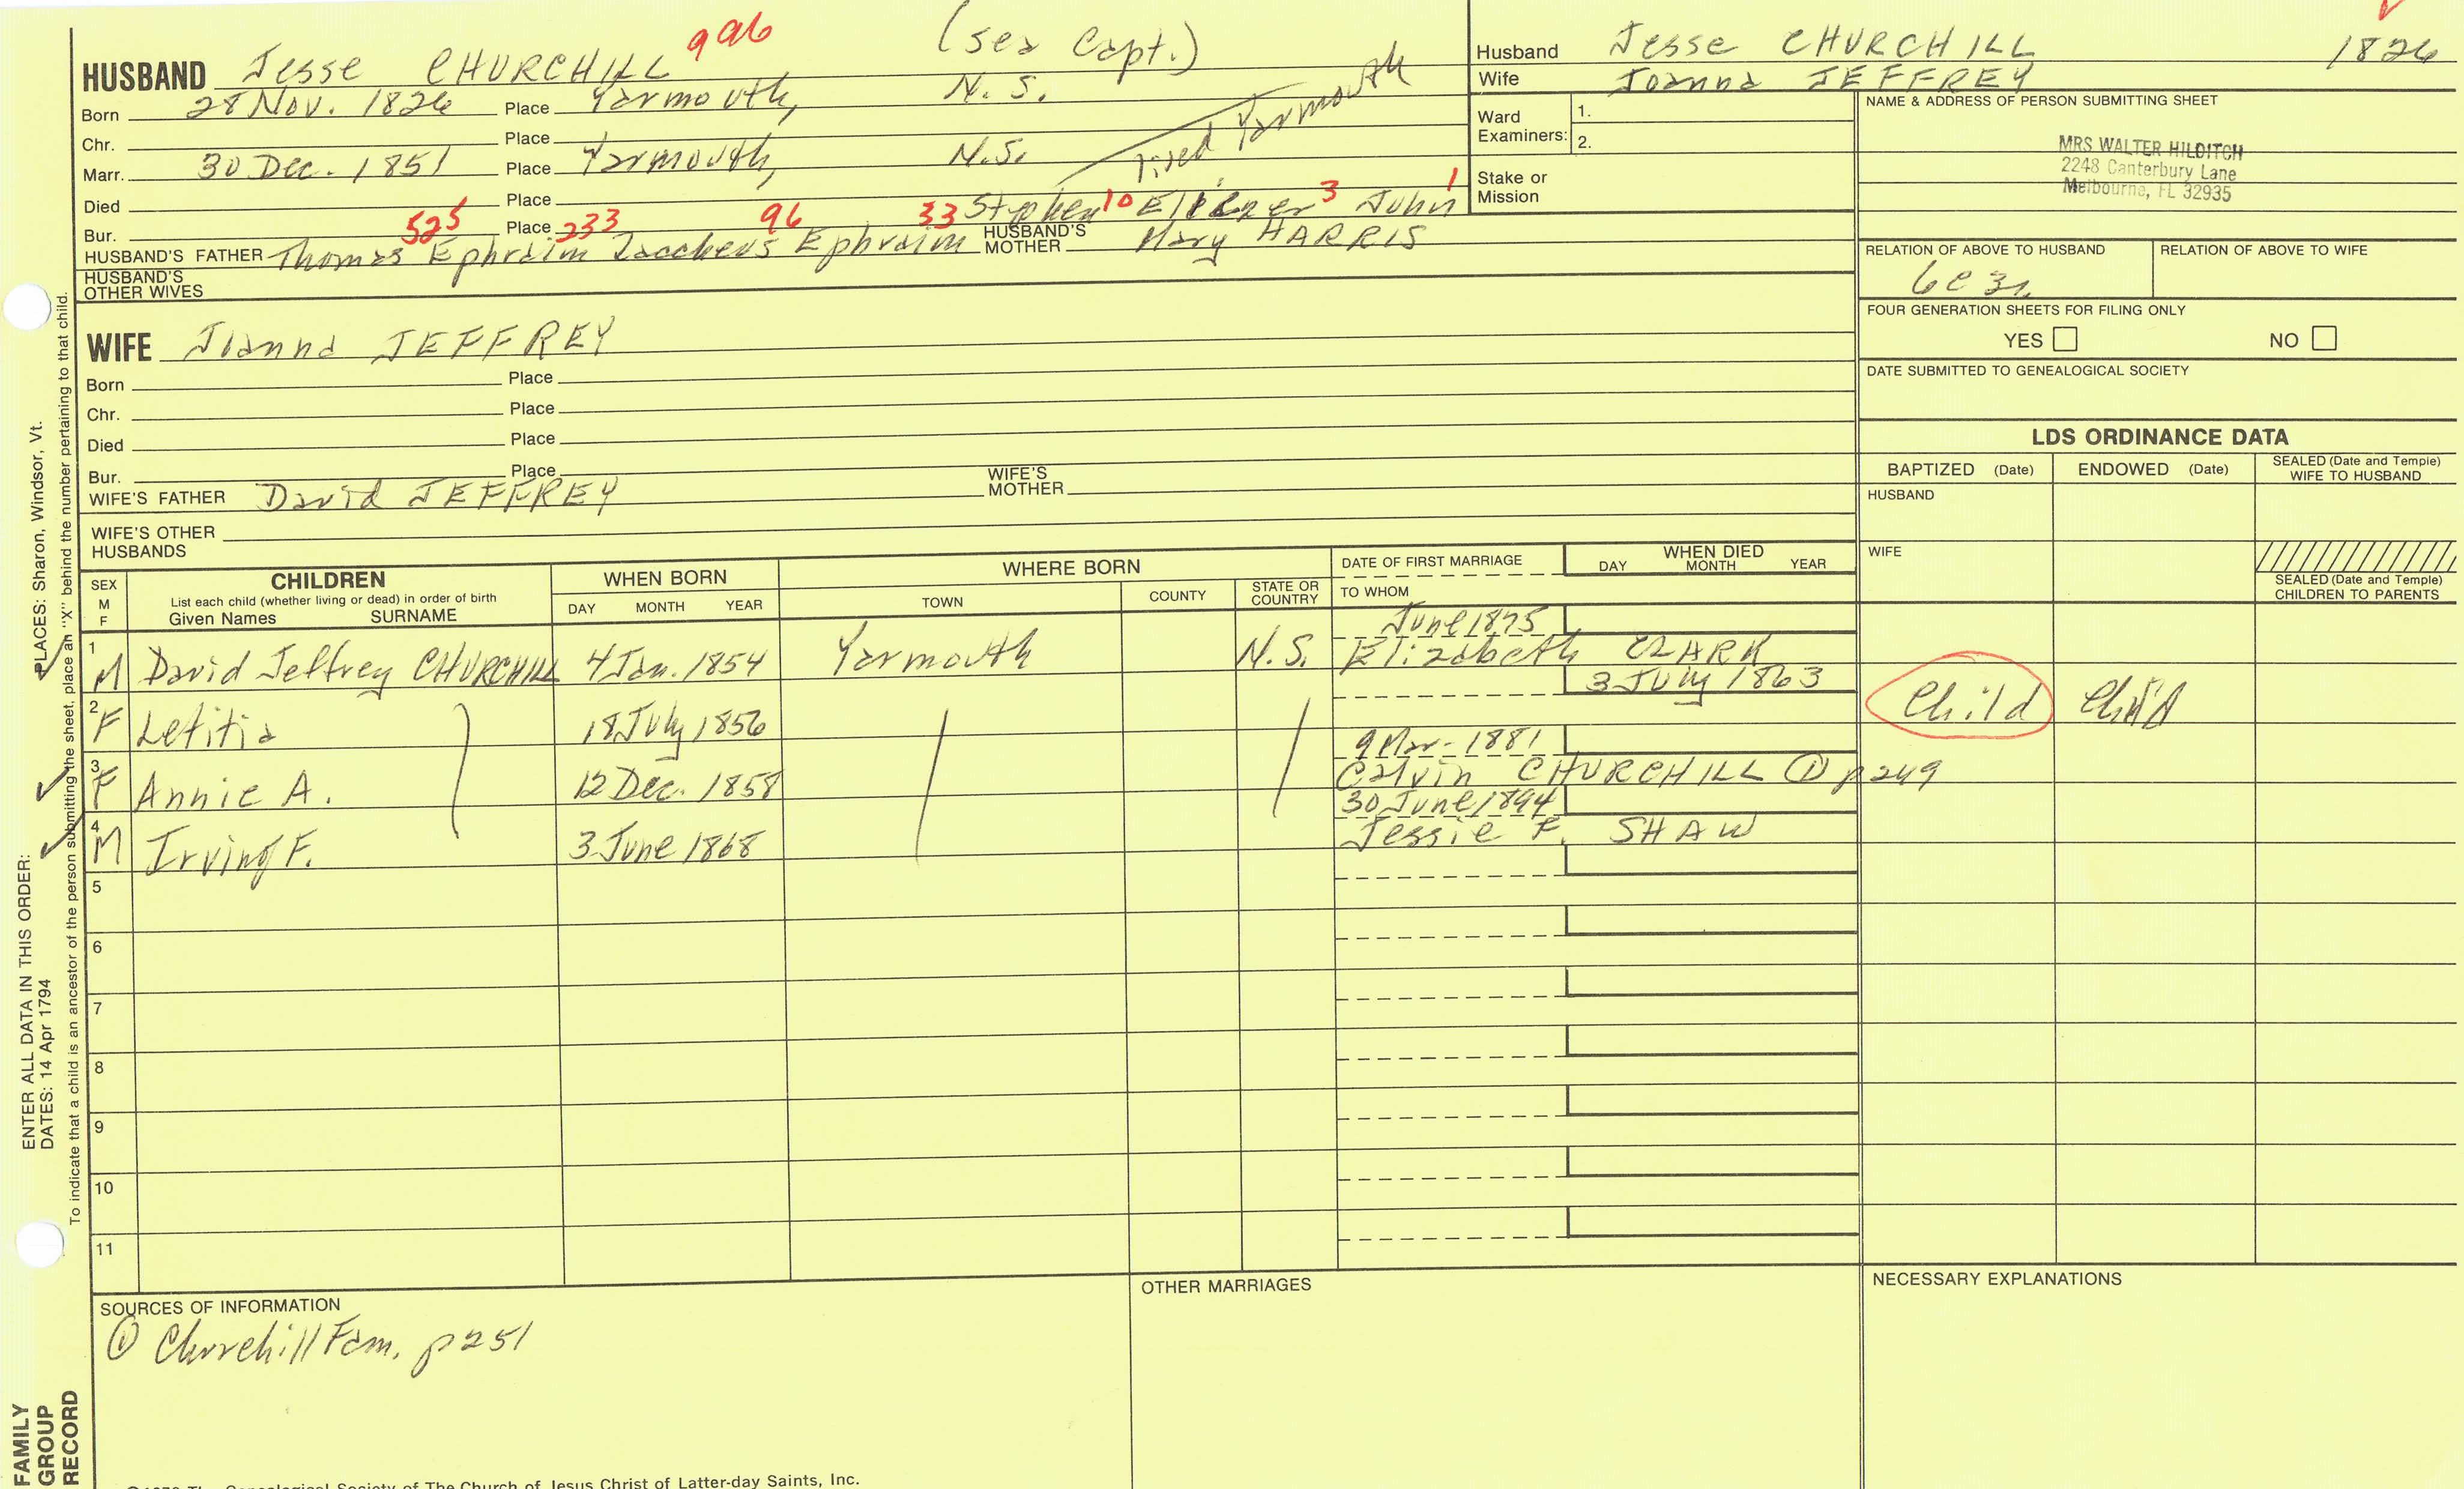 HUSBAND Jesse CHURCHILL 996 (sea Capt.)
Born 28 Nov. 1826 Place Yarmouth, N.S.
Chr. Place
Marr. 30 Dec. 1851 Place Yarmouth, N.S. lived Yarmouth
Died Place
525 233 96 33 Stephen 10 Eliezer 3 John 1
Bur. Place
HUSBAND'S FATHER Thomas Ephraim Zaccheus Ephraim HUSBAND'S MOTHER Mary HARRIS
HUSBAND'S OTHER WIVES
Husband Jesse CHURCHILL 1826
Wife Joanna JEFFREY
Ward Examiners: 1.
2.
Stake or Mission
NAME & ADDRESS OF PERSON SUBMITTING SHEET
MRS WALTER HILDITCH
2248 Canterbury Lane
Melbourne, FL 32935
RELATION OF ABOVE TO HUSBAND RELATION OF ABOVE TO WIFE
6C 3r.
FOUR GENERATION SHEETS FOR FILING ONLY
YES NO
DATE SUBMITTED TO GENEALOGICAL SOCIETY
WIFE Joanna JEFFREY
Born Place
Chr. Place
Died Place
Bur. Place
WIFE'S FATHER David JEFFREY WIFE'S MOTHER
WIFE'S OTHER HUSBANDS
LDS ORDINANCE DATA
BAPTIZED (Date) ENDOWED (Date) SEALED (Date and Temple) WIFE TO HUSBAND
HUSBAND
WIFE
SEALED (Date and Temple) CHILDREN TO PARENTS
SEX M F CHILDREN List each child (whether living or dead) in order of birth Given Names SURNAME WHEN BORN DAY MONTH YEAR WHERE BORN TOWN COUNTY STATE OR COUNTRY DATE OF FIRST MARRIAGE TO WHOM WHEN DIED DAY MONTH YEAR
June 1875
1 M David Jeffrey CHURCHILL 4 Jan. 1854 Yarmouth N.S. Elizabeth CLARK
3 July 1863
2 F Letitia 18 July 1856 Child Child
9 Mar. 1881
3 F Annie A. 12 Dec. 1858 Calvin CHURCHILL ① p249
30 June 1894
4 M Irving F. 3 June 1868 Jessie F. SHAW
5
6
7
8
9
10
11
SOURCES OF INFORMATION
① Churchill Fam. p251
OTHER MARRIAGES
NECESSARY EXPLANATIONS
©1978 The Genealogical Society of The Church of Jesus Christ of Latter-day Saints, Inc.
PLACES: Sharon, Windsor, Vt.
To indicate that a child is an ancestor of the person submitting the sheet, place an "X" behind the number pertaining to that child.
ENTER ALL DATA IN THIS ORDER:
DATES: 14 Apr 1794
FAMILY GROUP RECORD